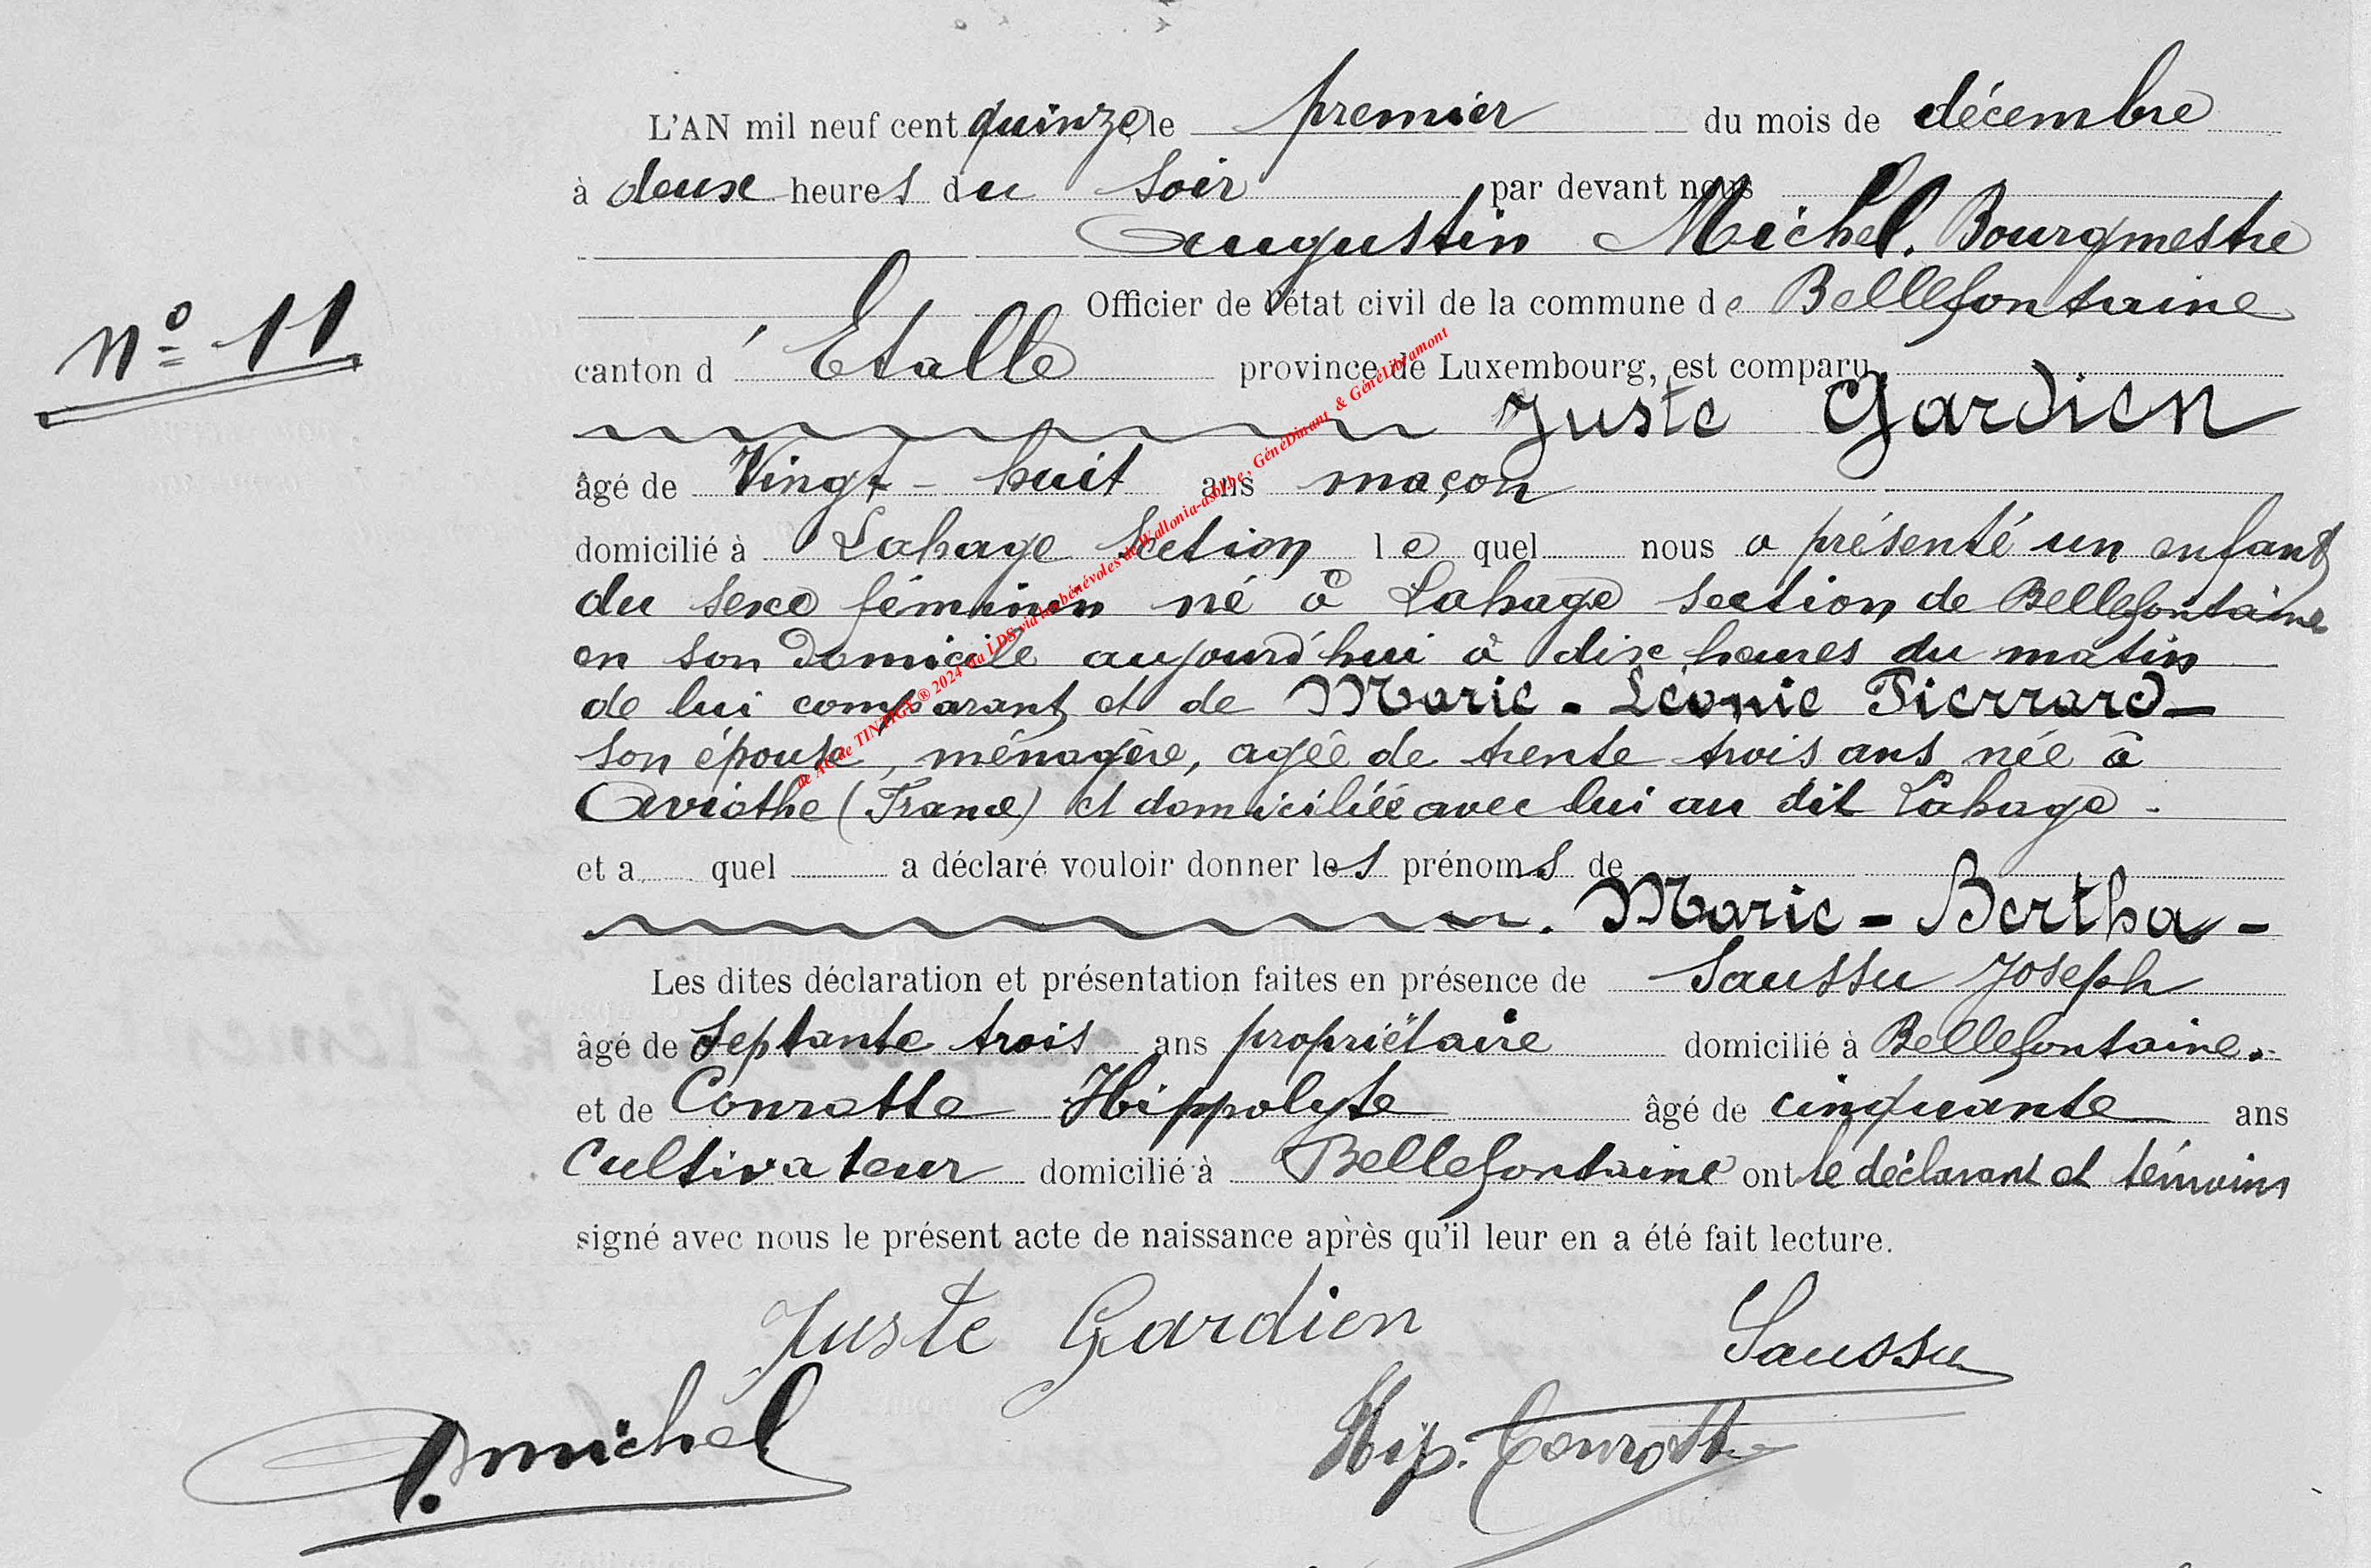 L'AN mil neuf cent quinze le premier du mois de décembre
à deux heures du soir par devant nous
Augustin Michel, Bourgmestre
Officier de l'état civil de la commune de Bellefontaine
nº 11
canton d'Etalle province de Luxembourg, est comparu
Juste Gardien
âgé de Vingt-huit ans maçon
domicilié à Lahage Section lequel nous a présenté un enfant
du sexe féminin né à Lahage section de Bellefontaine
en son domicile aujourd'hui à dix heures du matin
de lui comparant et de Marie-Léonie Pierrard
son épouse, ménagère, agée de trente trois ans née à
Aviothe (France) et domiciliée avec lui au dit Lahage.
et a quel a déclaré vouloir donner les prénoms de
Marie-Bertha-
Les dites déclaration et présentation faites en présence de Saussu Joseph
âgé de septante trois ans propriétaire domicilié à Bellefontaine.
et de Conrotte Hippolyte âgé de cinquante ans
Cultivateur domicilié à Bellefontaine ont le déclarant et témoins
signé avec nous le présent acte de naissance après qu'il leur en a été fait lecture.
Juste Gardien
Saussu
A. Michel
Hip. Conrotte
de AC de TINTIGY ® 2024 via LDS via les bénévoles de Wallonia-asbl.be, GénéDinant & GénéLibramont